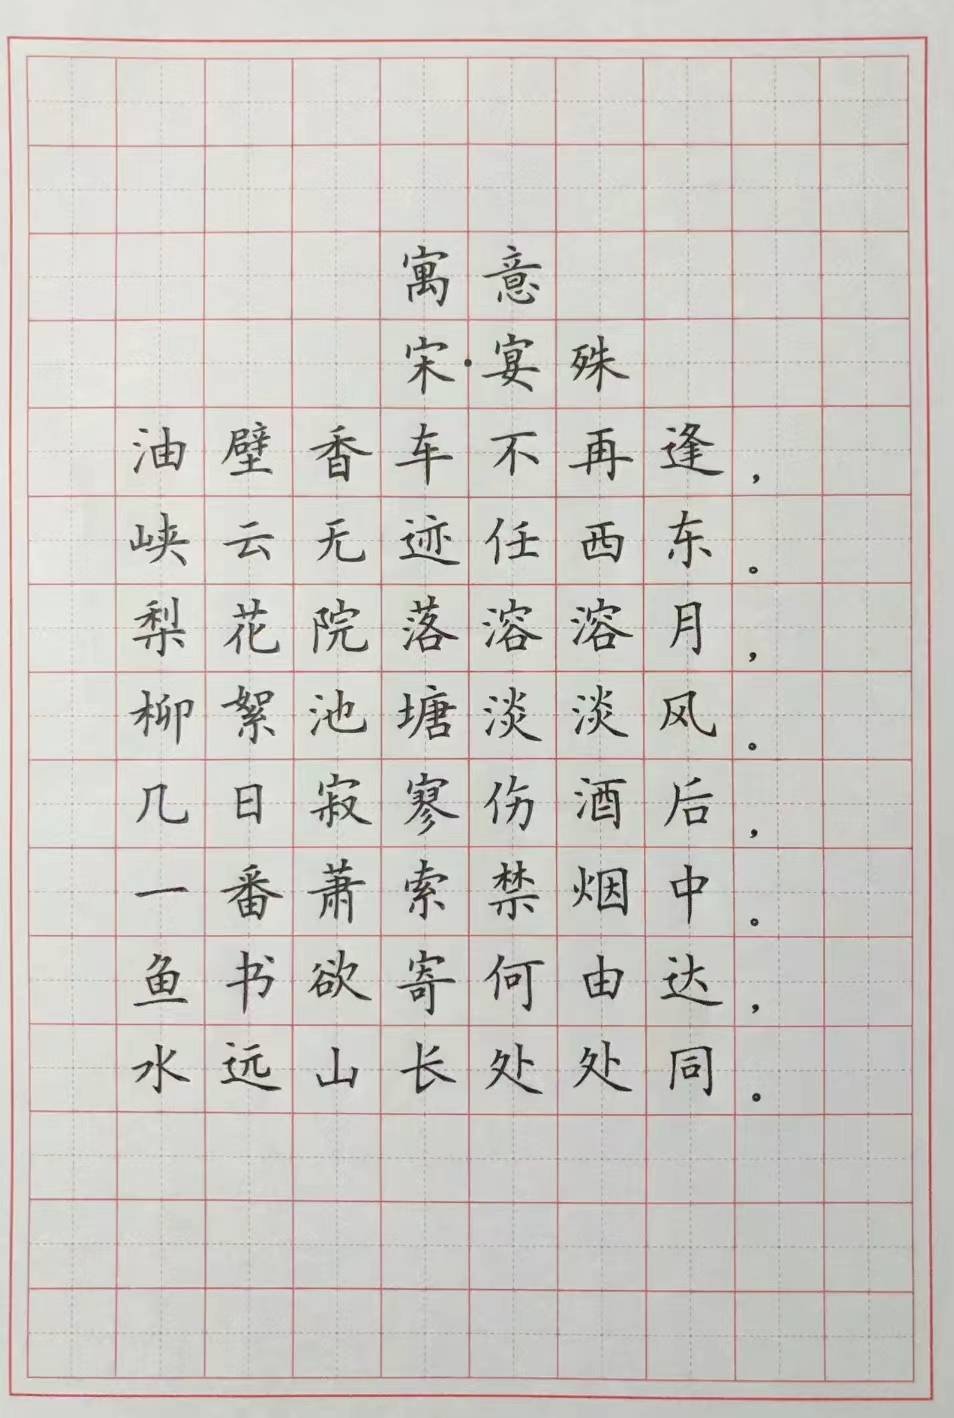 寓意
宋·宴殊
油壁香车不再逢，
峡云无迹任西东。
梨花院落溶溶月，
柳絮池塘淡淡风。
几日寂寥伤酒后，
一番萧索禁烟中。
鱼书欲寄何由达，
水远山长处处同。